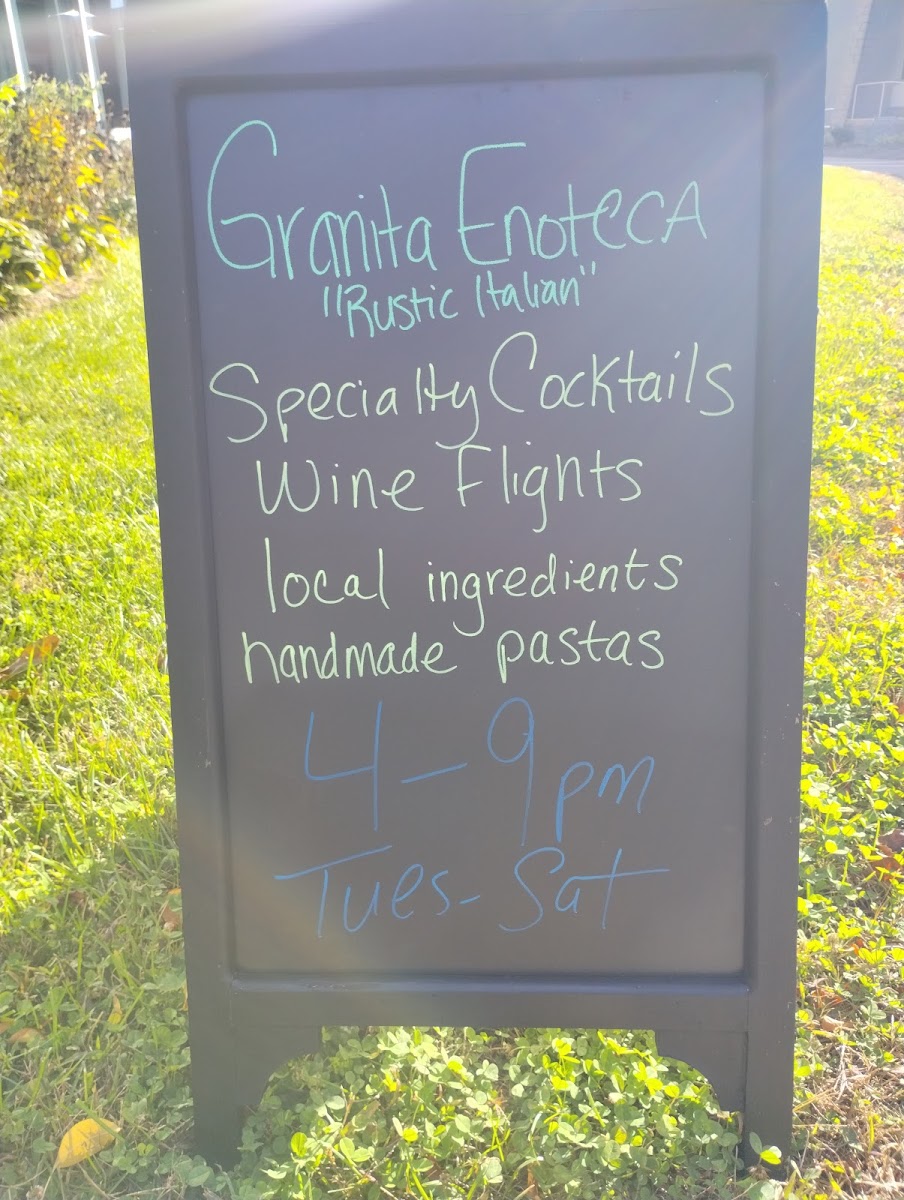 Granita Enoteca
"Rustic Italian"
Specialty Cocktails
Wine Flights
local ingredients
handmade pastas
4-9pm
Tues-Sat